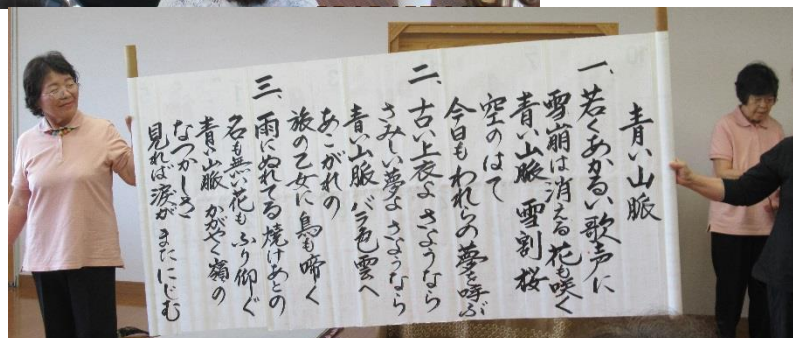 青い山脈
一、若くあかるい歌声に
雪崩は消える 花も咲く
青い山脈 雪割桜
空のはて
今日もわれらの 夢を呼ぶ
二、古い上衣よ さようなら
さみしい夢よ さようなら
青い山脈 バラ色雲へ
あこがれの
旅の乙女に 鳥も啼く
三、雨にぬれてる 焼けあとの
名も無い花も ふり仰ぐ
青い山脈 かがやく嶺の
なつかしさ
見れば涙が またにじむ